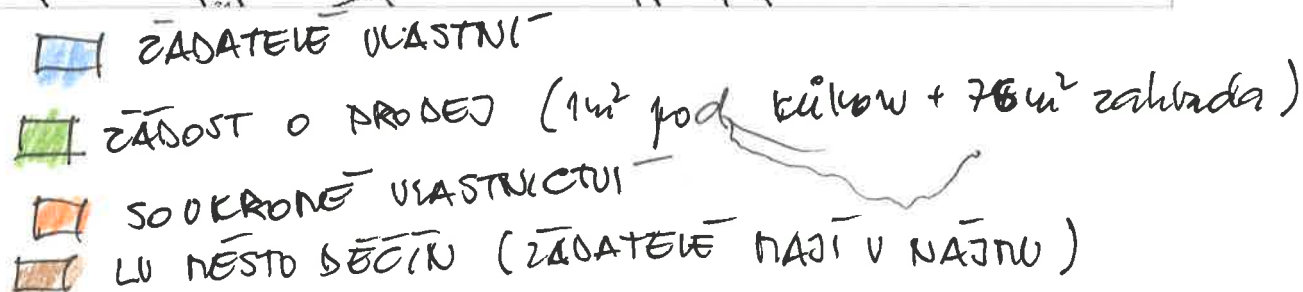 ŽADATELÉ VLASTNÍ
ŽÁDOST O PRODEJ (1m² pod kůlnou + 76m² zahrada)
SOUKROMÉ VLASTNICTVÍ
LV MĚSTO DĚČÍN (ŽADATELÉ MAJÍ V NÁJMU)